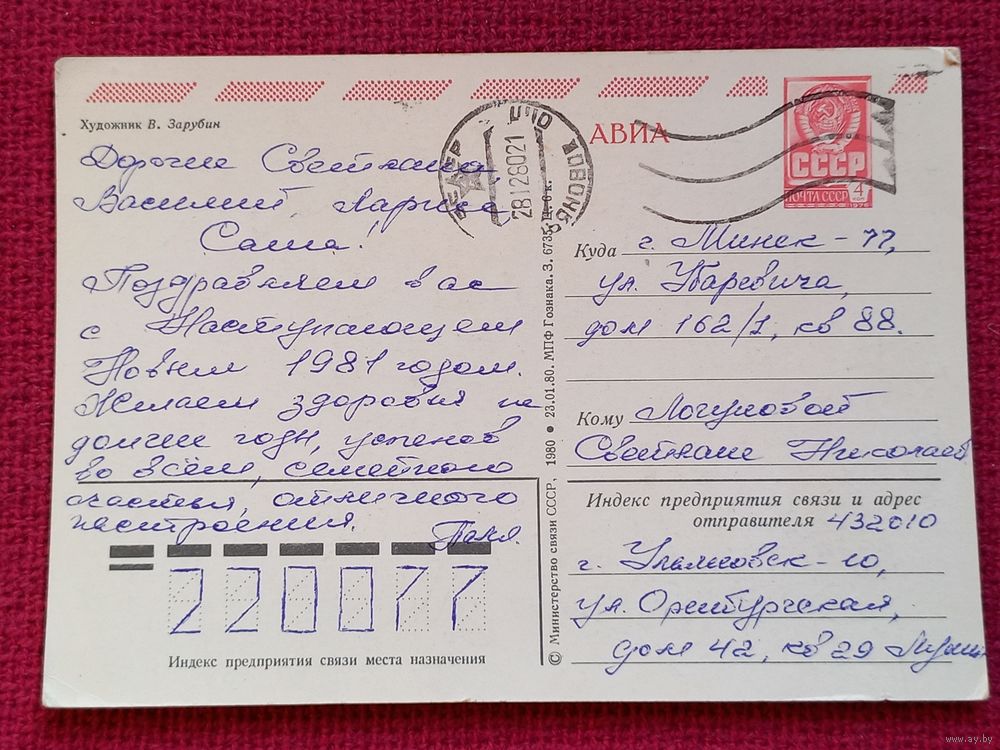 Художник В. Зарубин
АВИА
СССР
ПОЧТА СССР 4
1976
28128021
Дорогие Светлана,
Василий, Лариса,
Саша!
Поздравляем вас
с Наступающем
Новым 1981 годом.
Желаем здоровья на
долгие годы, успехов
во всём, семейного
счастья, отличного
настроения.
Таня.
220077
Индекс предприятия связи места назначения
© Министерство связи СССР, 1980 • 23.01.80. МПФ Гознака. З. 6735. Ц. 6 к.
Куда г. Минск-77,
ул. Убаревича,
дом 162/1, кв 88.
Кому Логуновой
Светлане Николаев
Индекс предприятия связи и адрес
отправителя 432010
г. Ульяновск-10,
ул. Оренбургская,
дом 42, кв 29
www.ay.by